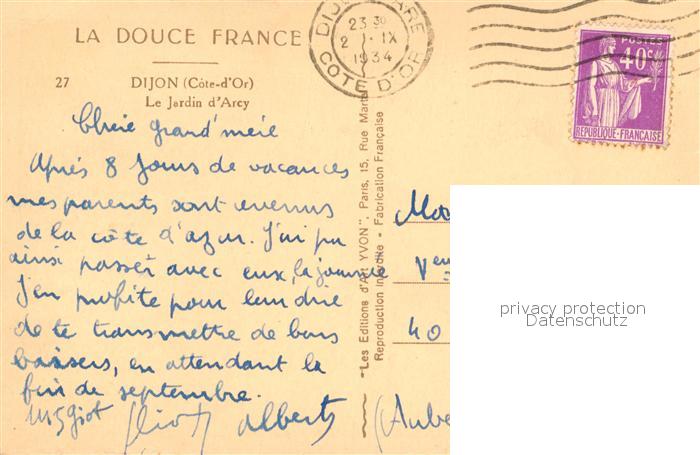 LA DOUCE FRANCE
27 DIJON (Côte-d'Or)
Le Jardin d'Arcy
DIJON GARE
23 30
2 IX
1934
COTE D'OR
POSTES
40c
REPUBLIQUE-FRANÇAISE
Chère grand'mère
Après 8 jours de vacances
mes parents sont revenus
de la côte d'azur. J'ai pu
ainsi passer avec eux, la journée
J'en profite pour leur dire
de te transmettre de bons
baisers, en attendant la
fin de septembre.
albert
"Les Editions d'Art YVON", Paris, 15, Rue Martel
Reproduction Interdite - Fabrication Française
40
(Aube
privacy protection
Datenschutz